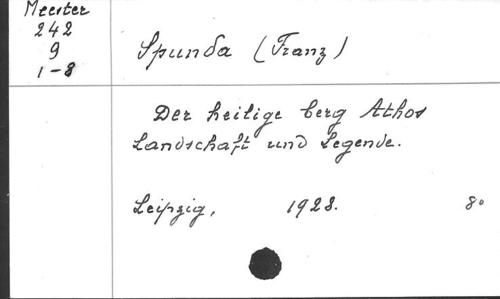 Meester
242
9
1-8
Spunda (Franz)
Der heilige berg Athos
Landschaft und Legende.
Leipzig, 1928. 8°